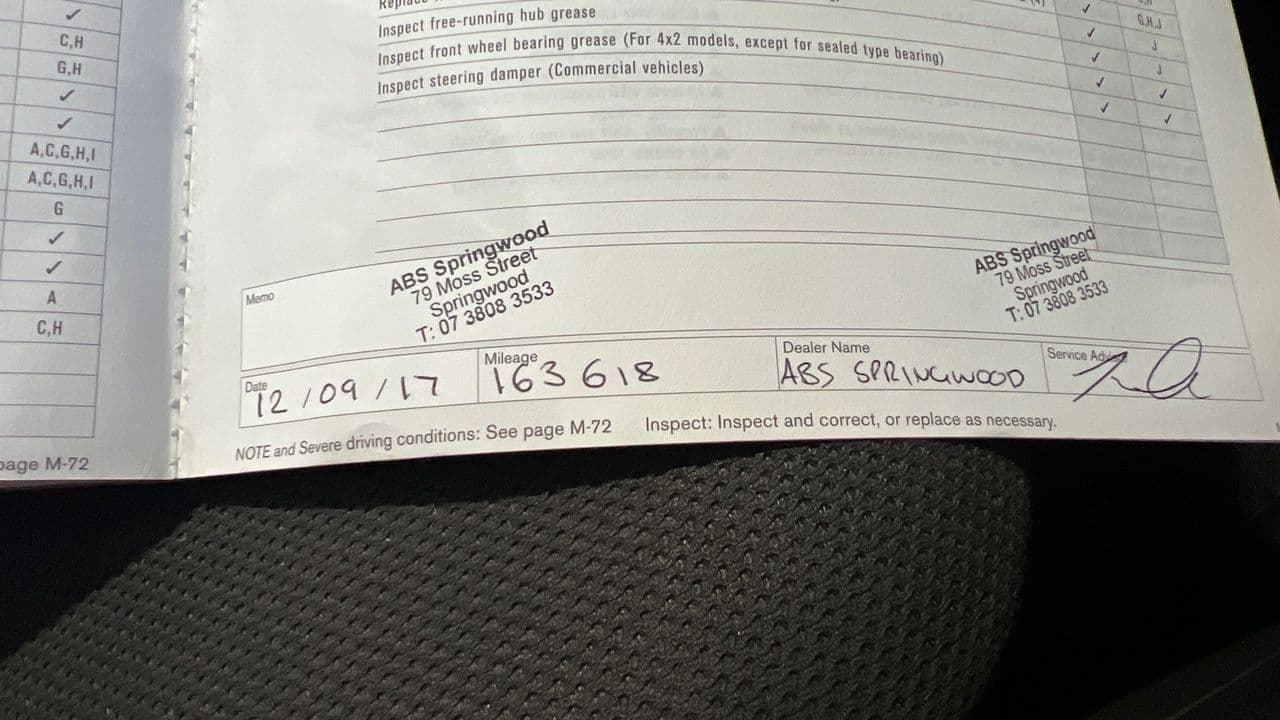 ✓
C,H
G,H
✓
✓
A,C,G,H,I
A,C,G,H,I
G
✓
✓
A
C,H
page M-72
Inspect free-running hub grease
Inspect front wheel bearing grease (For 4x2 models, except for sealed type bearing)
Inspect steering damper (Commercial vehicles)
✓ G,H,J
✓ J
✓ J
✓ ✓
✓ ✓
Memo
ABS Springwood
79 Moss Street
Springwood
T: 07 3808 3533
ABS Springwood
79 Moss Street
Springwood
T: 07 3808 3533
Date
12/09/17
Mileage
163 618
Dealer Name
ABS SPRINGWOOD
Service
NOTE and Severe driving conditions: See page M-72 Inspect: Inspect and correct, or replace as necessary.